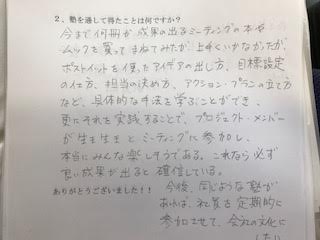 2. 塾を通して得たことは何ですか?
今まで何冊か成果の出るミーティングの本や
ムックを買ってまねてみたが、上手くいかなかったが、
ポストイットを使ったアイデアの出し方、目標設定
の仕方、担当の決め方、アクション・プランの立て方
など、具体的な手法を学ぶことができ、
更にそれを実践することで、プロジェクト・メンバー
が生き生きとミーティングに参加し、
本当にみんな楽しそうである。これなら必ず
良い成果が出ると確信している。
ありがとうございました!!
今後、同じような塾が
あれば、社員を定期的に
参加させて、会社の文化に
したい